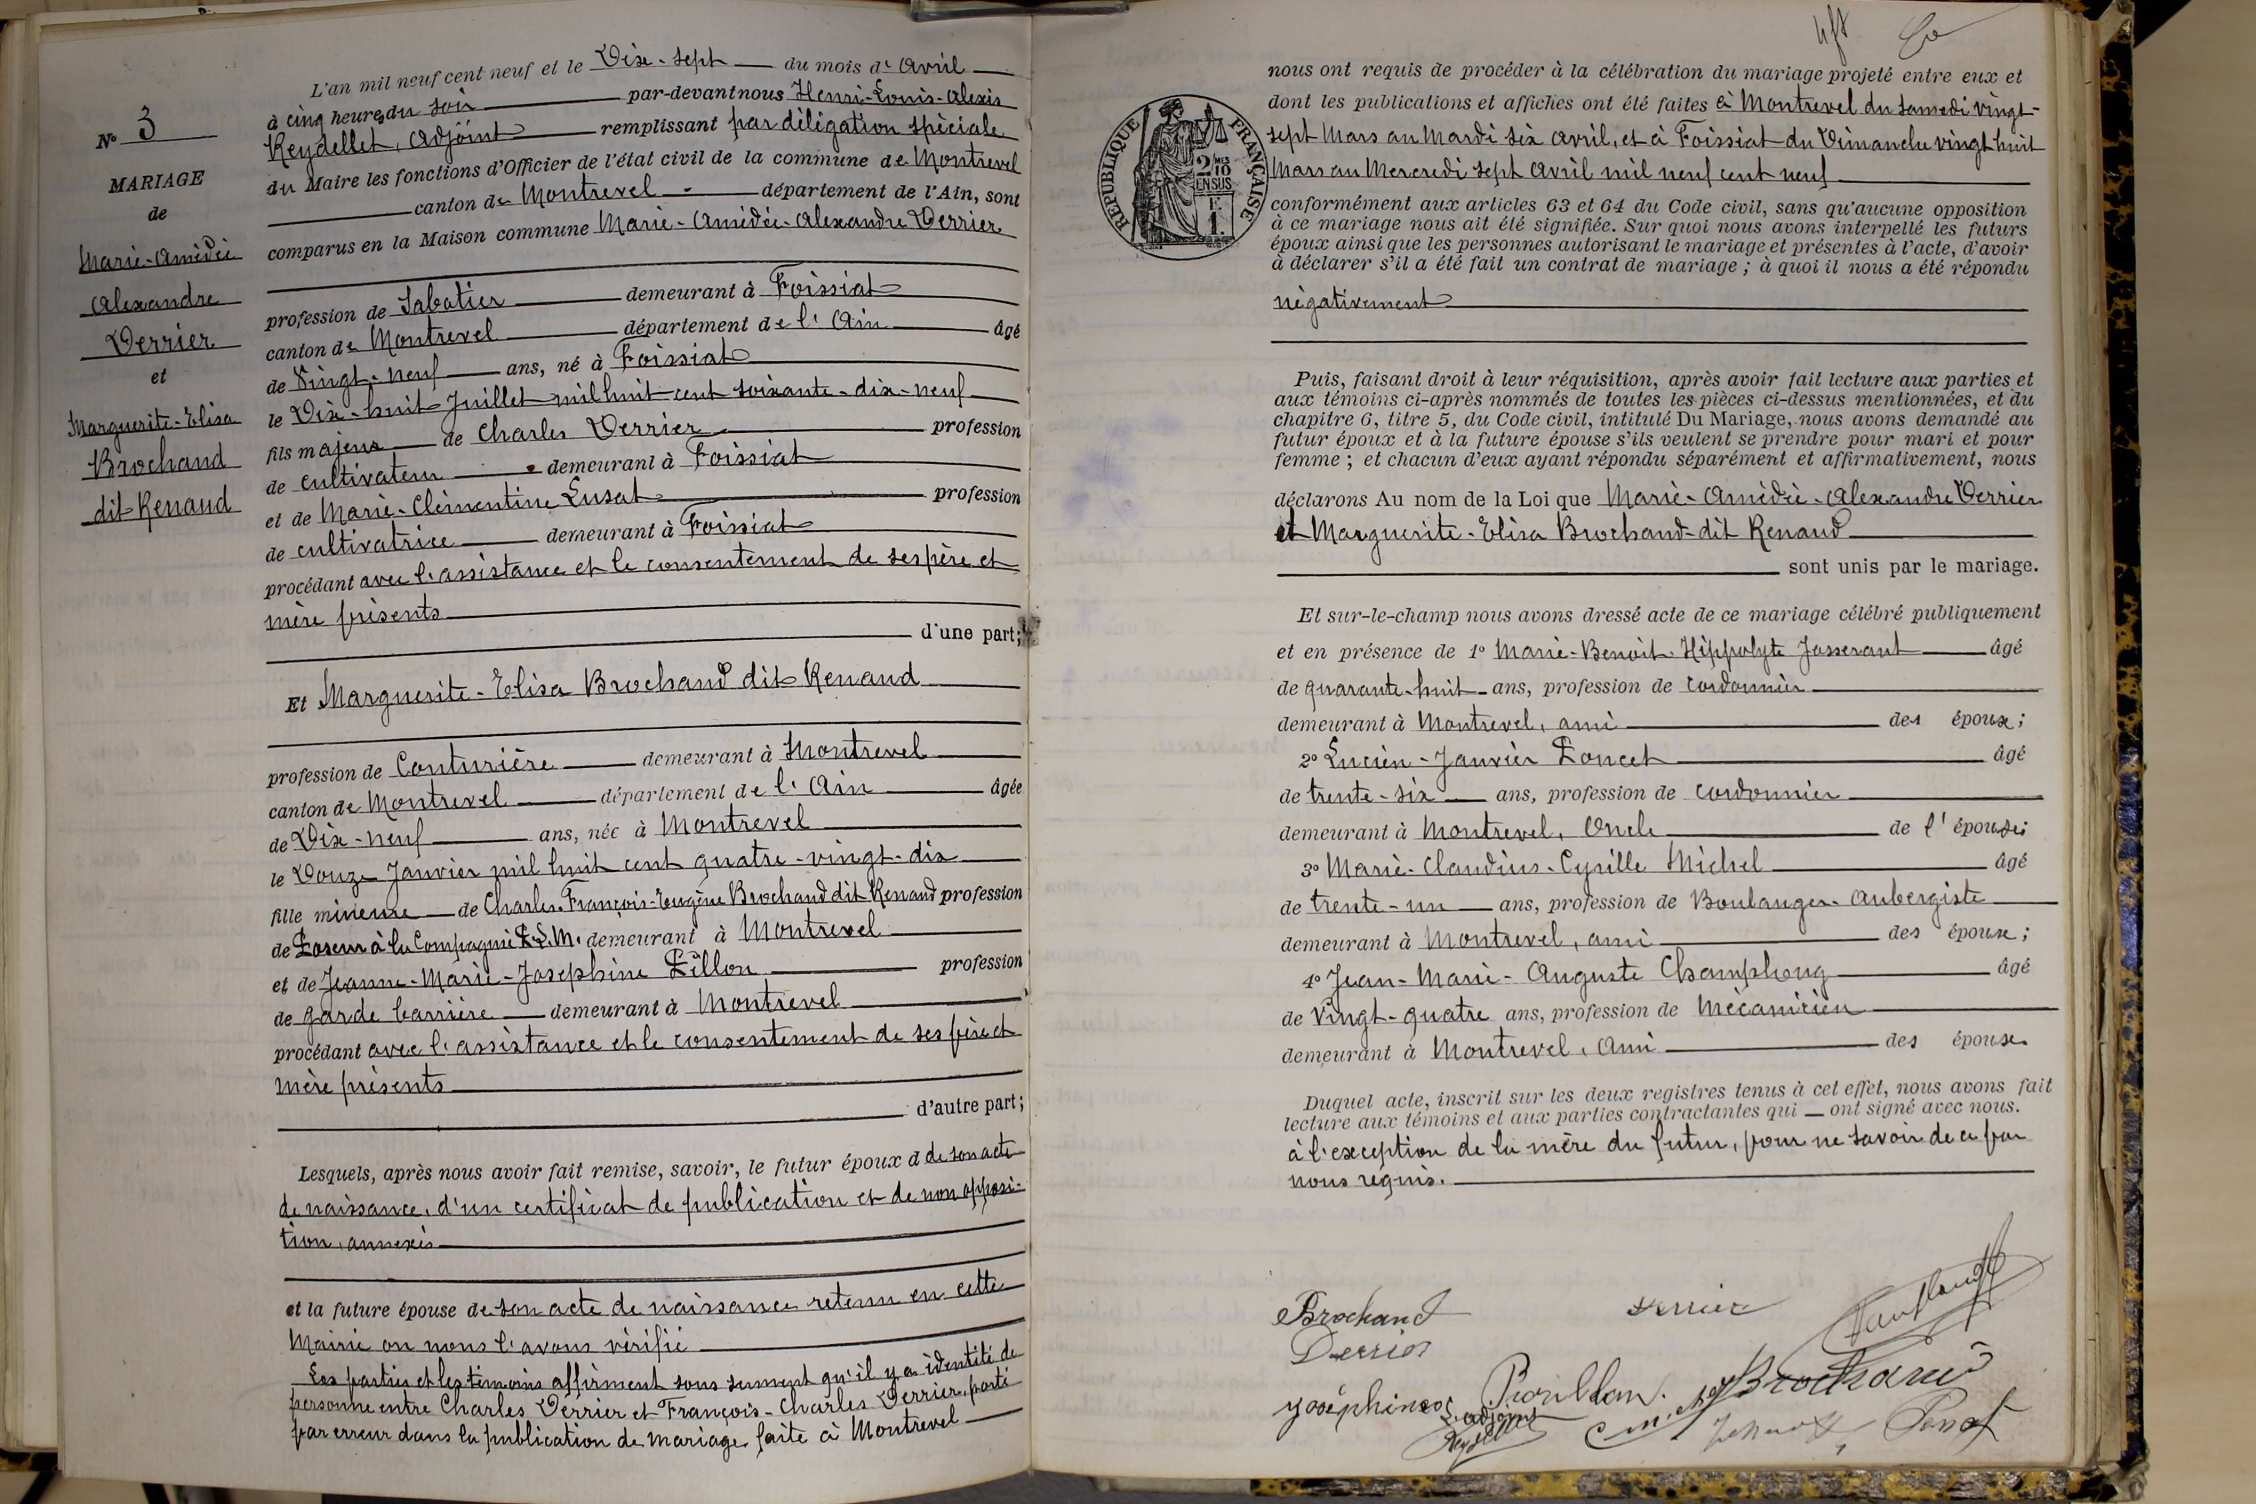 N° 3
MARIAGE
de
Marie-Amédée
Alexandre
Verrier
et
Marguerite-Elisa
Brochand
dit Renaud
L'an mil neuf cent neuf et le Dix-sept du mois d' Avril
à cinq heures du soir par-devant nous Henri-Louis-Alexis
Reydellet, Adjoint remplissant par déligation spéciale
du Maire les fonctions d'Officier de l'état civil de la commune de Montrevel
canton de Montrevel département de l'Ain, sont
comparus en la Maison commune Marie-Amédée-Alexandre Verrier
profession de Sabotier demeurant à Foissiat
canton de Montrevel département de l'Ain âgé
de Vingt-neuf ans, né à Foissiat
le Dix-huit Juillet mil huit cent soixante-dix-neuf
fils majeur de Charles Verrier profession
de cultivateur demeurant à Foissiat
et de Marie-Clémentine Lusat profession
de cultivatrice demeurant à Foissiat
procédant avec l'assistance et le consentement de ses père et
mère présents
d'une part;
Et Marguerite-Elisa Brochand dit Renaud
profession de Couturière demeurant à Montrevel
canton de Montrevel département de l'Ain âgée
de Dix-neuf ans, née à Montrevel
le Douze Janvier mil huit cent quatre-vingt-dix
fille mineure de Charles-François-Eugène Brochand dit Renaud profession
de Poseur à la Compagnie P.L.M. demeurant à Montrevel
et de Jeanne-Marie-Josephine Pillon profession
de garde barrière demeurant à Montrevel
procédant avec l'assistance et le consentement de ses père et
mère présents
d'autre part;
Lesquels, après nous avoir fait remise, savoir, le futur époux d de son acte
de naissance, d'un certificat de publication et de non opposi-
tion, annexés
et la future épouse de son acte de naissance retenu en cette
Mairie où nous l'avons vérifié
Les parties et les témoins affirment sous serment qu'il y a identité de
personne entre Charles Verrier et François-Charles Verrier, porté
par erreur dans la publication de mariage faite à Montrevel
nous ont requis de procéder à la célébration du mariage projeté entre eux et
dont les publications et affiches ont été faites à Montrevel du samedi vingt-
sept Mars au Mardi six Avril, et à Foissiat du Dimanche vingt huit
Mars au Mercredi sept Avril mil neuf cent neuf
RÉPUBLIQUE FRANÇAISE
2/10
EN SUS
F.
1.
conformément aux articles 63 et 64 du Code civil, sans qu'aucune opposition
à ce mariage nous ait été signifiée. Sur quoi nous avons interpellé les futurs
époux ainsi que les personnes autorisant le mariage et présentes à l'acte, d'avoir
à déclarer s'il a été fait un contrat de mariage; à quoi il nous a été répondu
négativement
Puis, faisant droit à leur réquisition, après avoir fait lecture aux parties et
aux témoins ci-après nommés de toutes les pièces ci-dessus mentionnées, et du
chapitre 6, titre 5, du Code civil, intitulé Du Mariage, nous avons demandé au
futur époux et à la future épouse s'ils veulent se prendre pour mari et pour
femme; et chacun d'eux ayant répondu séparément et affirmativement, nous
déclarons Au nom de la Loi que Marie-Amédée-Alexandre Verrier
et Marguerite-Elisa Brochand-dit Renaud
sont unis par le mariage.
Et sur-le-champ nous avons dressé acte de ce mariage célébré publiquement
et en présence de 1° Marie-Benoit-Hippolyte Josserant âgé
de quarante-huit ans, profession de cordonnier
demeurant à Montrevel, ami des époux;
2° Lucien-Janvier Poncet âgé
de trente-six ans, profession de cordonnier
demeurant à Montrevel, Oncle de l'épouse;
3° Marie-Claudius-Cyrille Michel âgé
de trente-un ans, profession de Boulanger-Aubergiste
demeurant à Montrevel, ami des époux;
4° Jean-Marie-Auguste Champhoug âgé
de Vingt-quatre ans, profession de Mécanicien
demeurant à Montrevel, ami des époux
Duquel acte, inscrit sur les deux registres tenus à cet effet, nous avons fait
lecture aux témoins et aux parties contractantes qui ont signé avec nous.
à l'exception de la mère du futur, pour ne savoir de ce par
nous requis.
Brochand
Verrier
Verrier
Joséphine
Brochand
L'adjoint
Reydellet